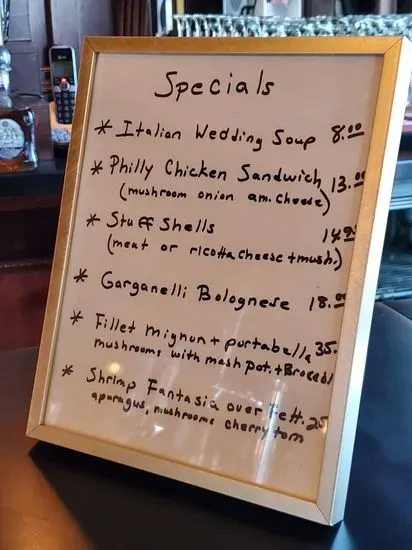 Specials
* Italian Wedding Soup 8.00
* Philly Chicken Sandwich 13.00
(mushroom onion am. cheese)
* Stuff Shells 14.00
(meat or ricotta cheese + mush.)
* Garganelli Bolognese 18.00
* Fillet mignun + portabella 35.
mushrooms with mash pot. + Broccoli
* Shrimp Fantasia over Fett. 25
aparagus, mushrooms cherry tom